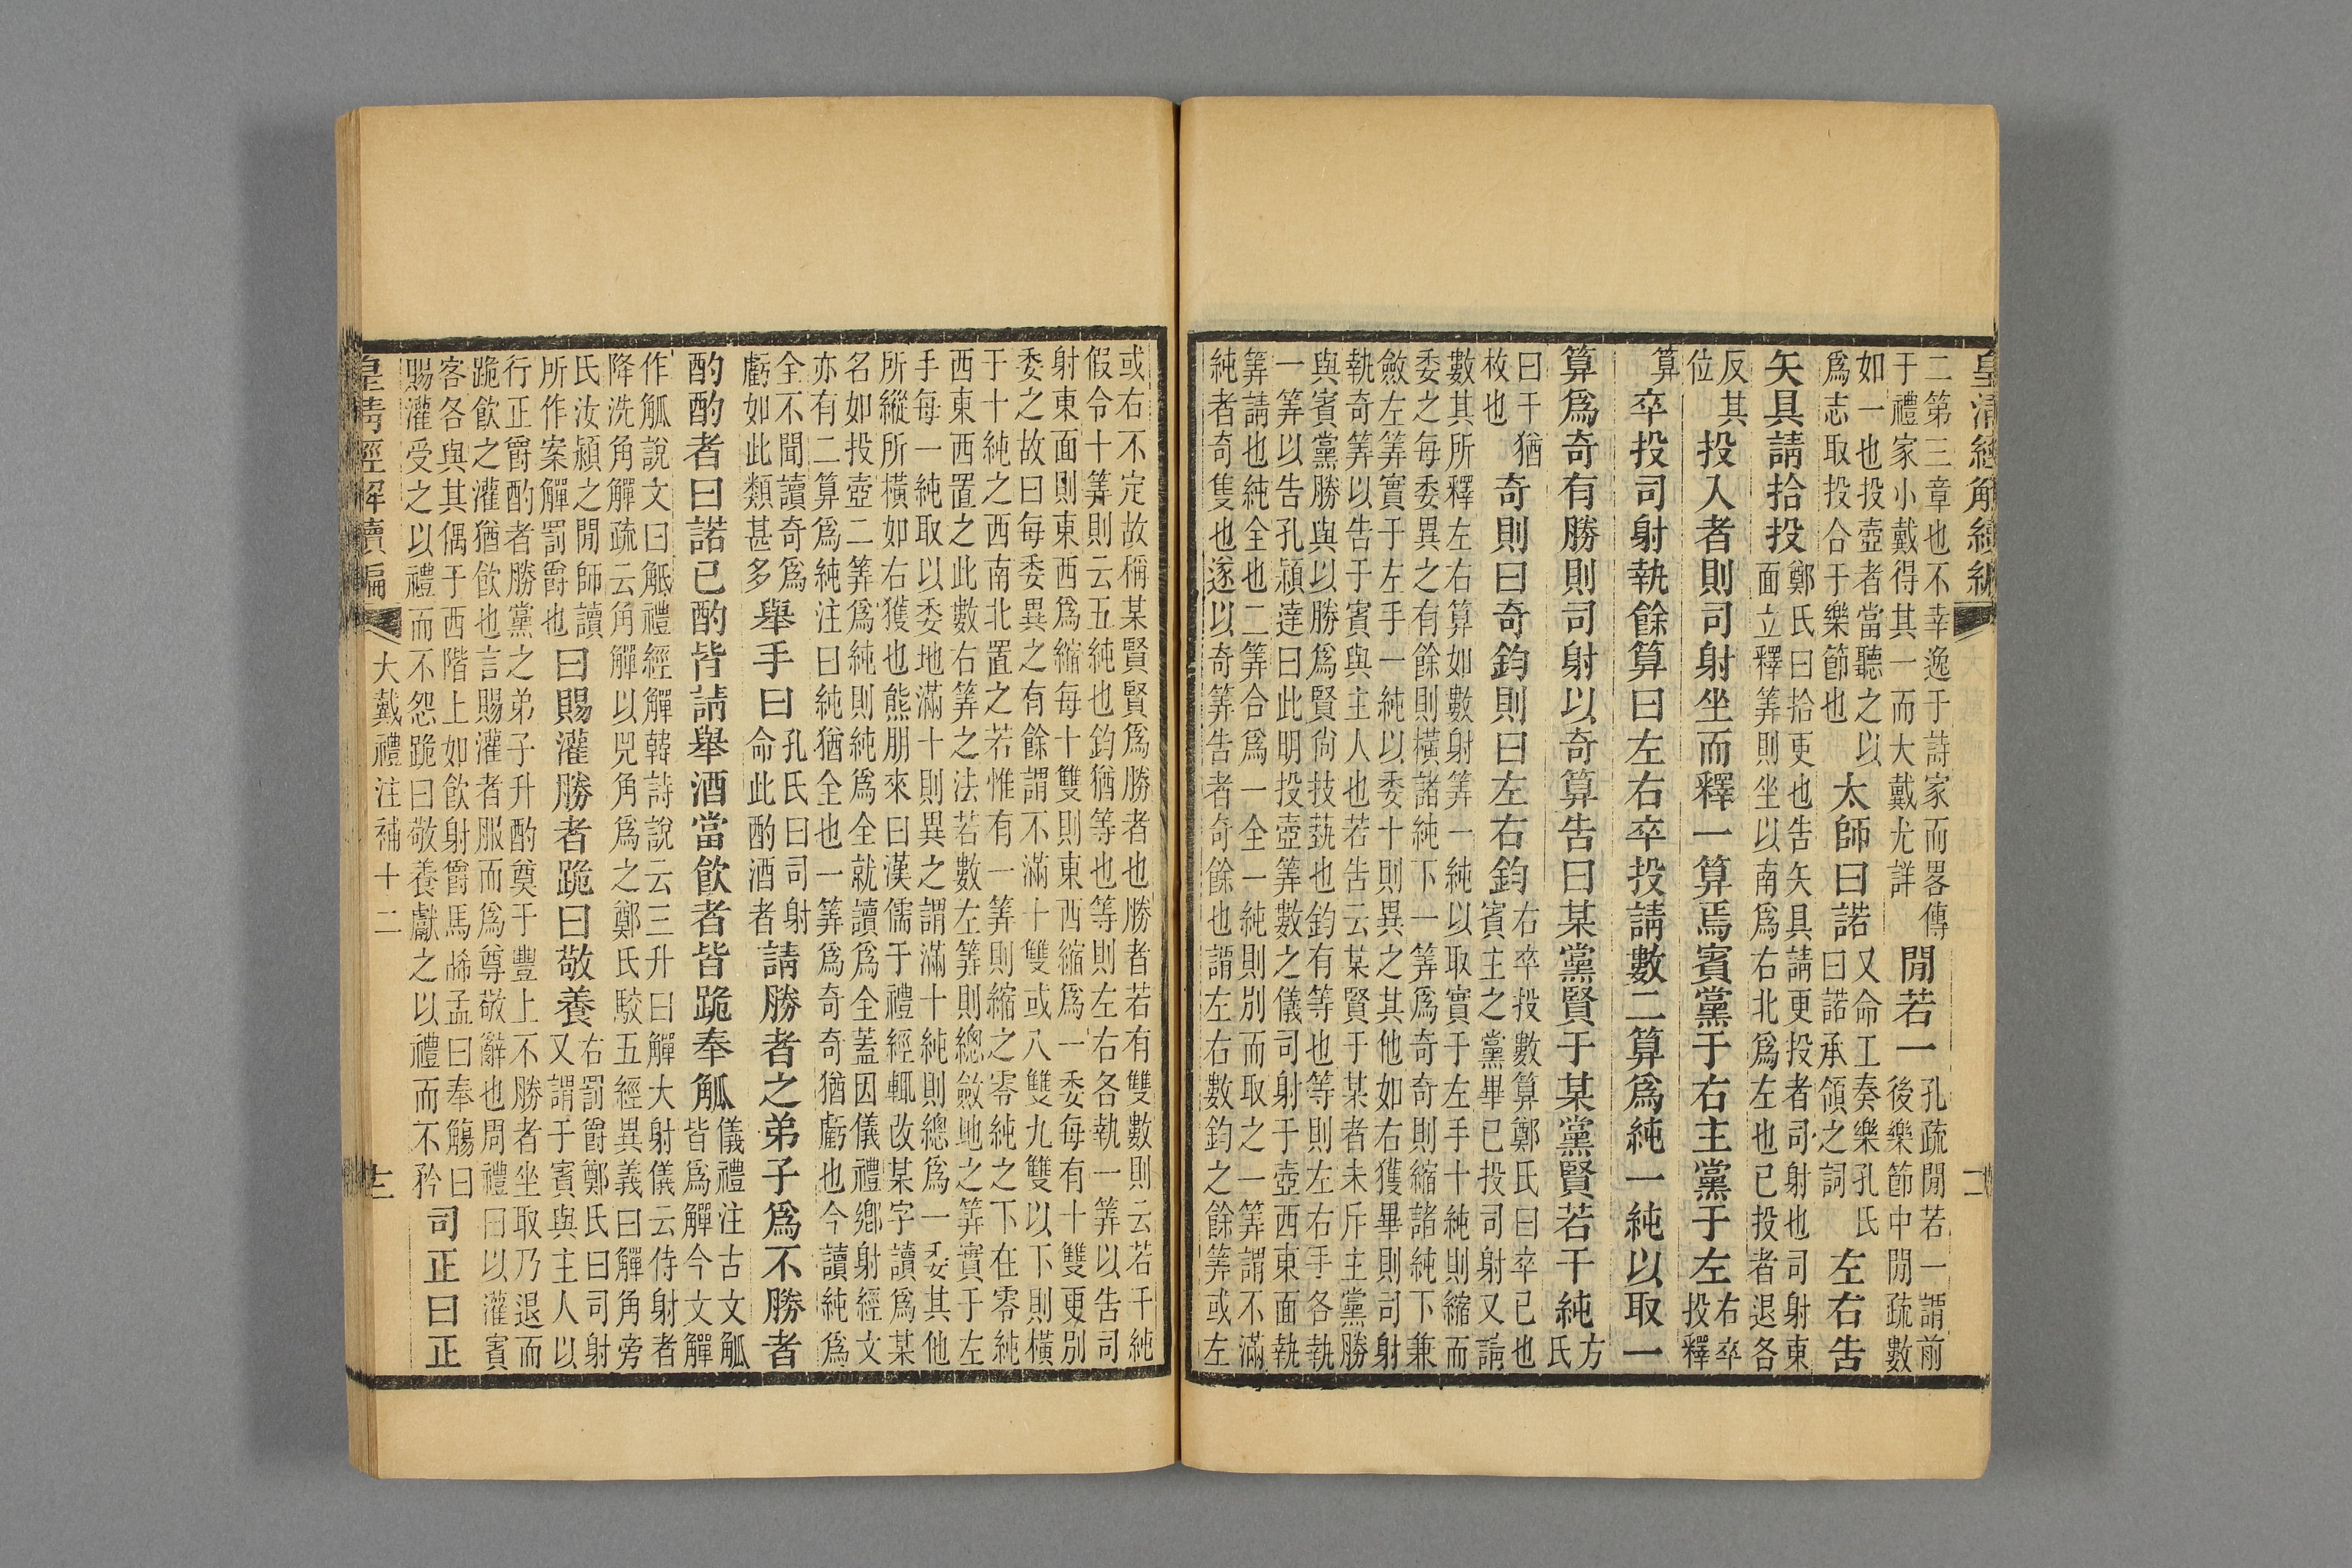 皇清經解續編
二第三章也不幸逸于詩家而畧傳
于禮家小戴得其一而大戴尤詳
閒若一
孔疏閒若一謂前
後樂節中閒疏數
如一也投壺者當聽之以
爲志取投合于樂節也
太師曰諾
又命工奏樂孔氏
曰諾承領之詞
左右告
矢具請拾投
鄭氏曰拾更也告矢具請更投者司射也司射東
面立釋筭則坐以南爲右北爲左也已投者退各
反其
位
投入者則司射坐而釋一算焉賓黨于右主黨于左
右卒
投釋
算
卒投司射執餘算曰左右卒投請數二算爲純一純以取一
算爲奇有勝則司射以奇算告曰某黨賢于某黨賢若干純
方
氏
曰干猶
枚也
奇則曰奇鈞則曰左右鈞
右卒投數算鄭氏曰卒已也
賓主之黨畢已投司射又請
數其所釋左右算如數射筭一純以取實于左手十純則縮而
委之每委異之有餘則橫諸純下一筭爲奇奇則縮諸純下兼
斂左筭實于左手一純以委十則異之其他如右獲畢則司射
執奇筭以告于賓與主人也若告云某賢于某者未斥主黨勝
與賓黨勝與以勝爲賢尙技蓺也鈞有等也等則左右手各執
一筭以告孔潁達曰此明投壺筭數之儀司射于壺西東面執
筭請也純全也二筭合爲一全一純則別而取之一筭謂不滿
純者奇隻也遂以奇筭告者奇餘也謂左右數鈞之餘筭或左
或右不定故稱某賢賢爲勝者也勝者若有雙數則云若干純
假令十筭則云五純也鈞猶等也等則左右各執一筭以告司
射東面則東西爲縮每十雙則東西縮爲一委每有十雙更別
委之故曰每委異之有餘謂不滿十雙或八雙九雙以下則橫
于十純之西南北置之若惟有一筭則縮之零純之下在零純
西東西置之此數右筭之法若數左筭則總斂地之筭實于左
手每一純取以委地滿十則異之謂滿十純則總爲一委其他
所縱所橫如右獲也熊朋來曰漢儒于禮經輒改某字讀爲某
名如投壺二筭爲純則純爲全就讀爲全蓋因儀禮鄕射經文
亦有二算爲純注曰純猶全也一筭爲奇奇猶虧也今讀純爲
全不聞讀奇爲
虧如此類甚多
舉手曰
孔氏曰司射
命此酌酒者
請勝者之弟子爲不勝者
酌酌者曰諾已酌皆請舉酒當飮者皆跪奉觚
儀禮注古文觚
皆爲觶今文觶
作觚說文曰觝禮經觶韓詩說云三升曰觶大射儀云侍射者
降洗角觶疏云角觶以兕角爲之鄭氏駮五經異義曰觶角旁
氏汝潁之閒師讀
所作案觶罰爵也
曰賜灌勝者跪曰敬養
右罰爵鄭氏曰司射
又謂于賓與主人以
行正爵酌者勝黨之弟子升酌奠于豐上不勝者坐取乃退而
跪飮之灌猶飮也言賜灌者服而爲尊敬辭也周禮曰以灌賓
客各與其偶于西階上如飮射爵馬晞孟曰奉觴曰
賜灌受之以禮而不怨跪曰敬養獻之以禮而不矜
司正曰正
皇清經解續編
大戴禮注補十二